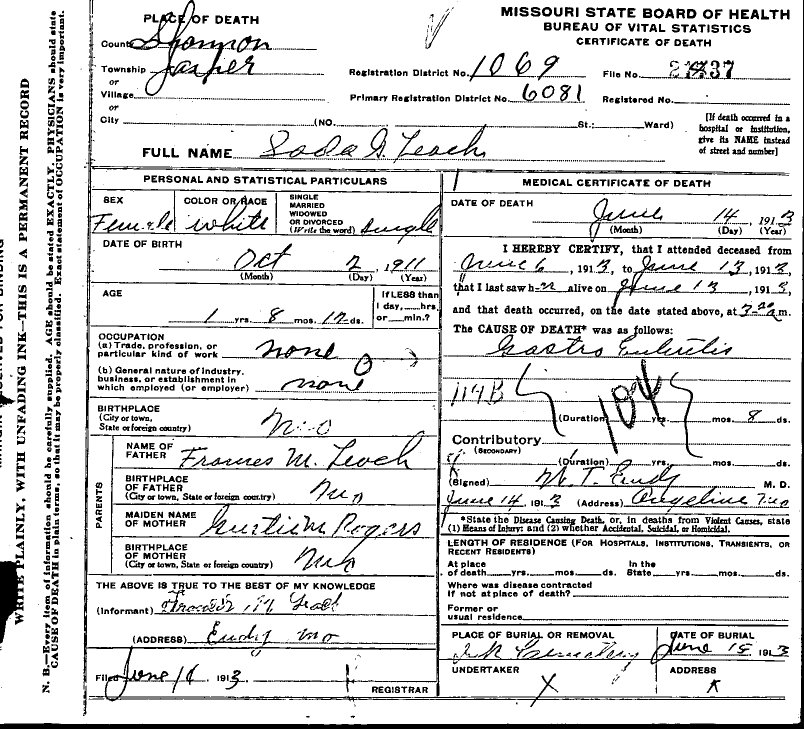 MISSOURI STATE BOARD OF HEALTH
BUREAU OF VITAL STATISTICS
CERTIFICATE OF DEATH
PLACE OF DEATH
County Shannon
Township Jasper
or
Village
or
City (NO. St.; Ward)
Registration District No. 1069 File No.
Primary Registration District No. 6081 Registered No.
[If death occurred in a
hospital or institution,
give its NAME instead
of street and number]
FULL NAME G. Leach
PERSONAL AND STATISTICAL PARTICULARS
SEX Female
COLOR OR RACE white
SINGLE
MARRIED
WIDOWED
OR DIVORCED
(Write the word) Single
DATE OF BIRTH
Oct 2, 1911
(Month) (Day) (Year)
AGE
1 yrs. 8 mos. 12 ds.
If LESS than
1 day, hrs.
or min.?
OCCUPATION
(a) Trade, profession, or
particular kind of work none
(b) General nature of industry,
business, or establishment in
which employed (or employer) none
BIRTHPLACE
(City or town,
State or foreign country) Mo
PARENTS
NAME OF
FATHER M. Leach
BIRTHPLACE
OF FATHER
(City or town, State or foreign country) Mo
MAIDEN NAME
OF MOTHER Rogers
BIRTHPLACE
OF MOTHER
(City or town, State or foreign country) Mo
THE ABOVE IS TRUE TO THE BEST OF MY KNOWLEDGE
(Informant)
(ADDRESS) Eudy Mo
Filed June 1913
REGISTRAR
MEDICAL CERTIFICATE OF DEATH
DATE OF DEATH
June 14, 1913
(Month) (Day) (Year)
I HEREBY CERTIFY, that I attended deceased from
June 6, 1913, to June 13, 1913,
that I last saw h er alive on June 13, 1913,
and that death occurred, on the date stated above, at m.
The CAUSE OF DEATH* was as follows:
Gastro Enteritis
119B
104
(Duration) yrs. mos. 8 ds.
Contributory
(SECONDARY)
(Duration) yrs. mos. ds.
(Signed) T. Eudy M. D.
June 14, 1913 (Address) Angeline Mo
*State the Disease Causing Death, or, in deaths from Violent Causes, state
(1) Means of Injury; and (2) whether Accidental, Suicidal, or Homicidal.
LENGTH OF RESIDENCE (FOR HOSPITALS, INSTITUTIONS, TRANSIENTS, OR
RECENT RESIDENTS)
At place
of death yrs. mos. ds.
In the
State yrs. mos. ds.
Where was disease contracted
if not at place of death?
Former or
usual residence
PLACE OF BURIAL OR REMOVAL
Cemetery
DATE OF BURIAL
June 15 1913
UNDERTAKER
X
ADDRESS
x
WRITE PLAINLY, WITH UNFADING INK—THIS IS A PERMANENT RECORD
N. B.—Every item of information should be carefully supplied. AGE should be stated EXACTLY. PHYSICIANS should state
CAUSE OF DEATH in plain terms, so that it may be properly classified. Exact statement of OCCUPATION is very important.